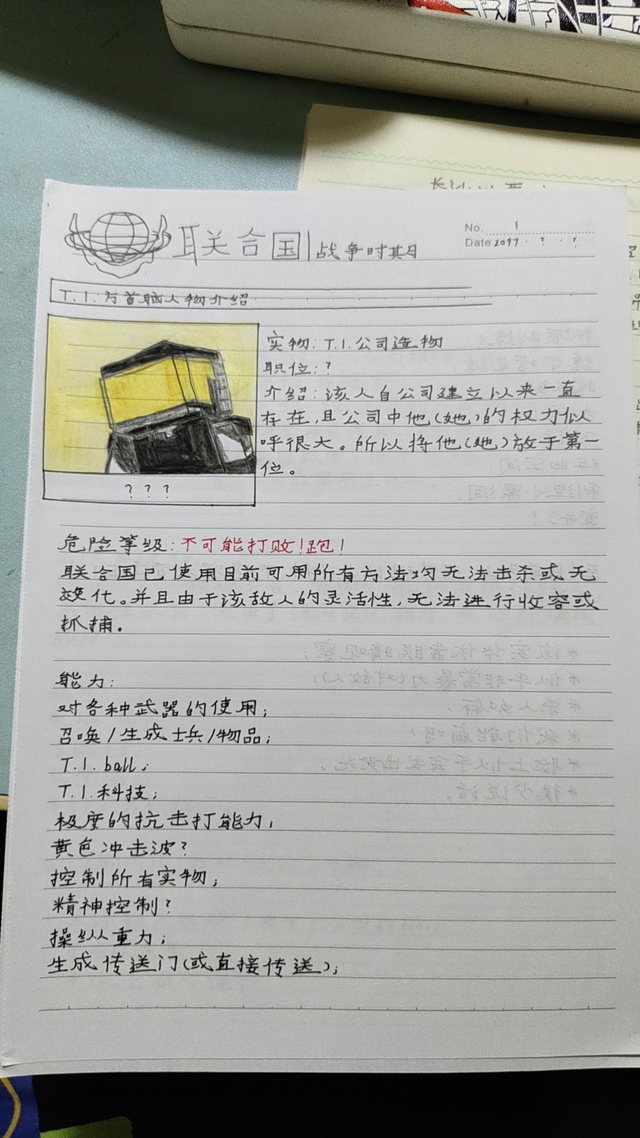 联合国 | 战争时期
No. 1
Date 2097 · ? · ?
T.I.方首脑人物介绍
实物: T.I.公司造物
职位:?
介绍:该人自公司建立以来一直
存在,且公司中他(她)的权力似
呼很大。所以将他(她)放于第一
位。
? ? ?
危险等级:不可能打败!跑!
联合国已使用目前可用所有方法均无法击杀或无
效化。并且由于该敌人的灵活性,无法进行收容或
抓捕.
能力:
对各种武器的使用;
召唤/生成士兵/物品;
T.I. ball;
T.I.科技;
极度的抗击打能力;
黄色冲击波?
控制所有实物;
精神控制?
操纵重力;
生成传送门(或直接传送);